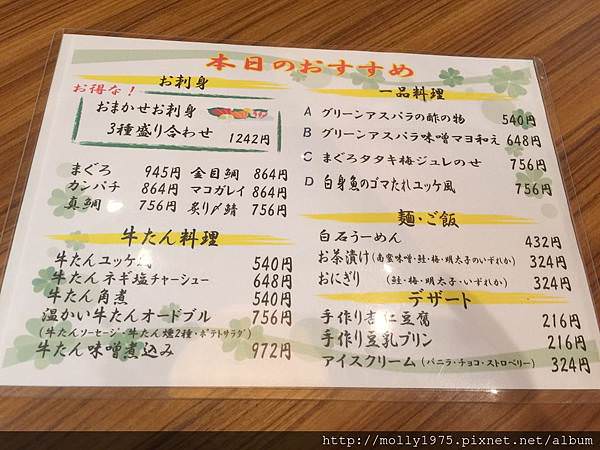 本日のおすすめ
お刺身
お得な!
おまかせお刺身
3種盛り合わせ 1242円
まぐろ 945円 金目鯛 864円
カンパチ 864円 マコガレイ 864円
真鯛 756円 炙り〆鯖 756円
牛たん料理
牛たんユッケ風 540円
牛たんネギ塩チャーシュー 648円
牛たん角煮 540円
温かい牛たんオードブル 756円
(牛たんソーセージ・牛たん燻2種・ポテトサラダ)
牛たん味噌煮込み 972円
一品料理
A グリーンアスパラの酢の物 540円
B グリーンアスパラ味噌マヨ和え 648円
C まぐろタタキ梅ジュレのせ 756円
D 白身魚のゴマだれユッケ風 756円
麺・ご飯
白石うーめん 432円
お茶漬け(南蛮味噌・鮭・梅・明太子・いずれか) 324円
おにぎり (鮭・梅・明太子・いずれか) 324円
デザート
手作り杏仁豆腐 216円
手作り豆乳プリン 216円
アイスクリーム(バニラ・チョコ・ストロベリー) 324円
http://molly1975.pixnet.net/album